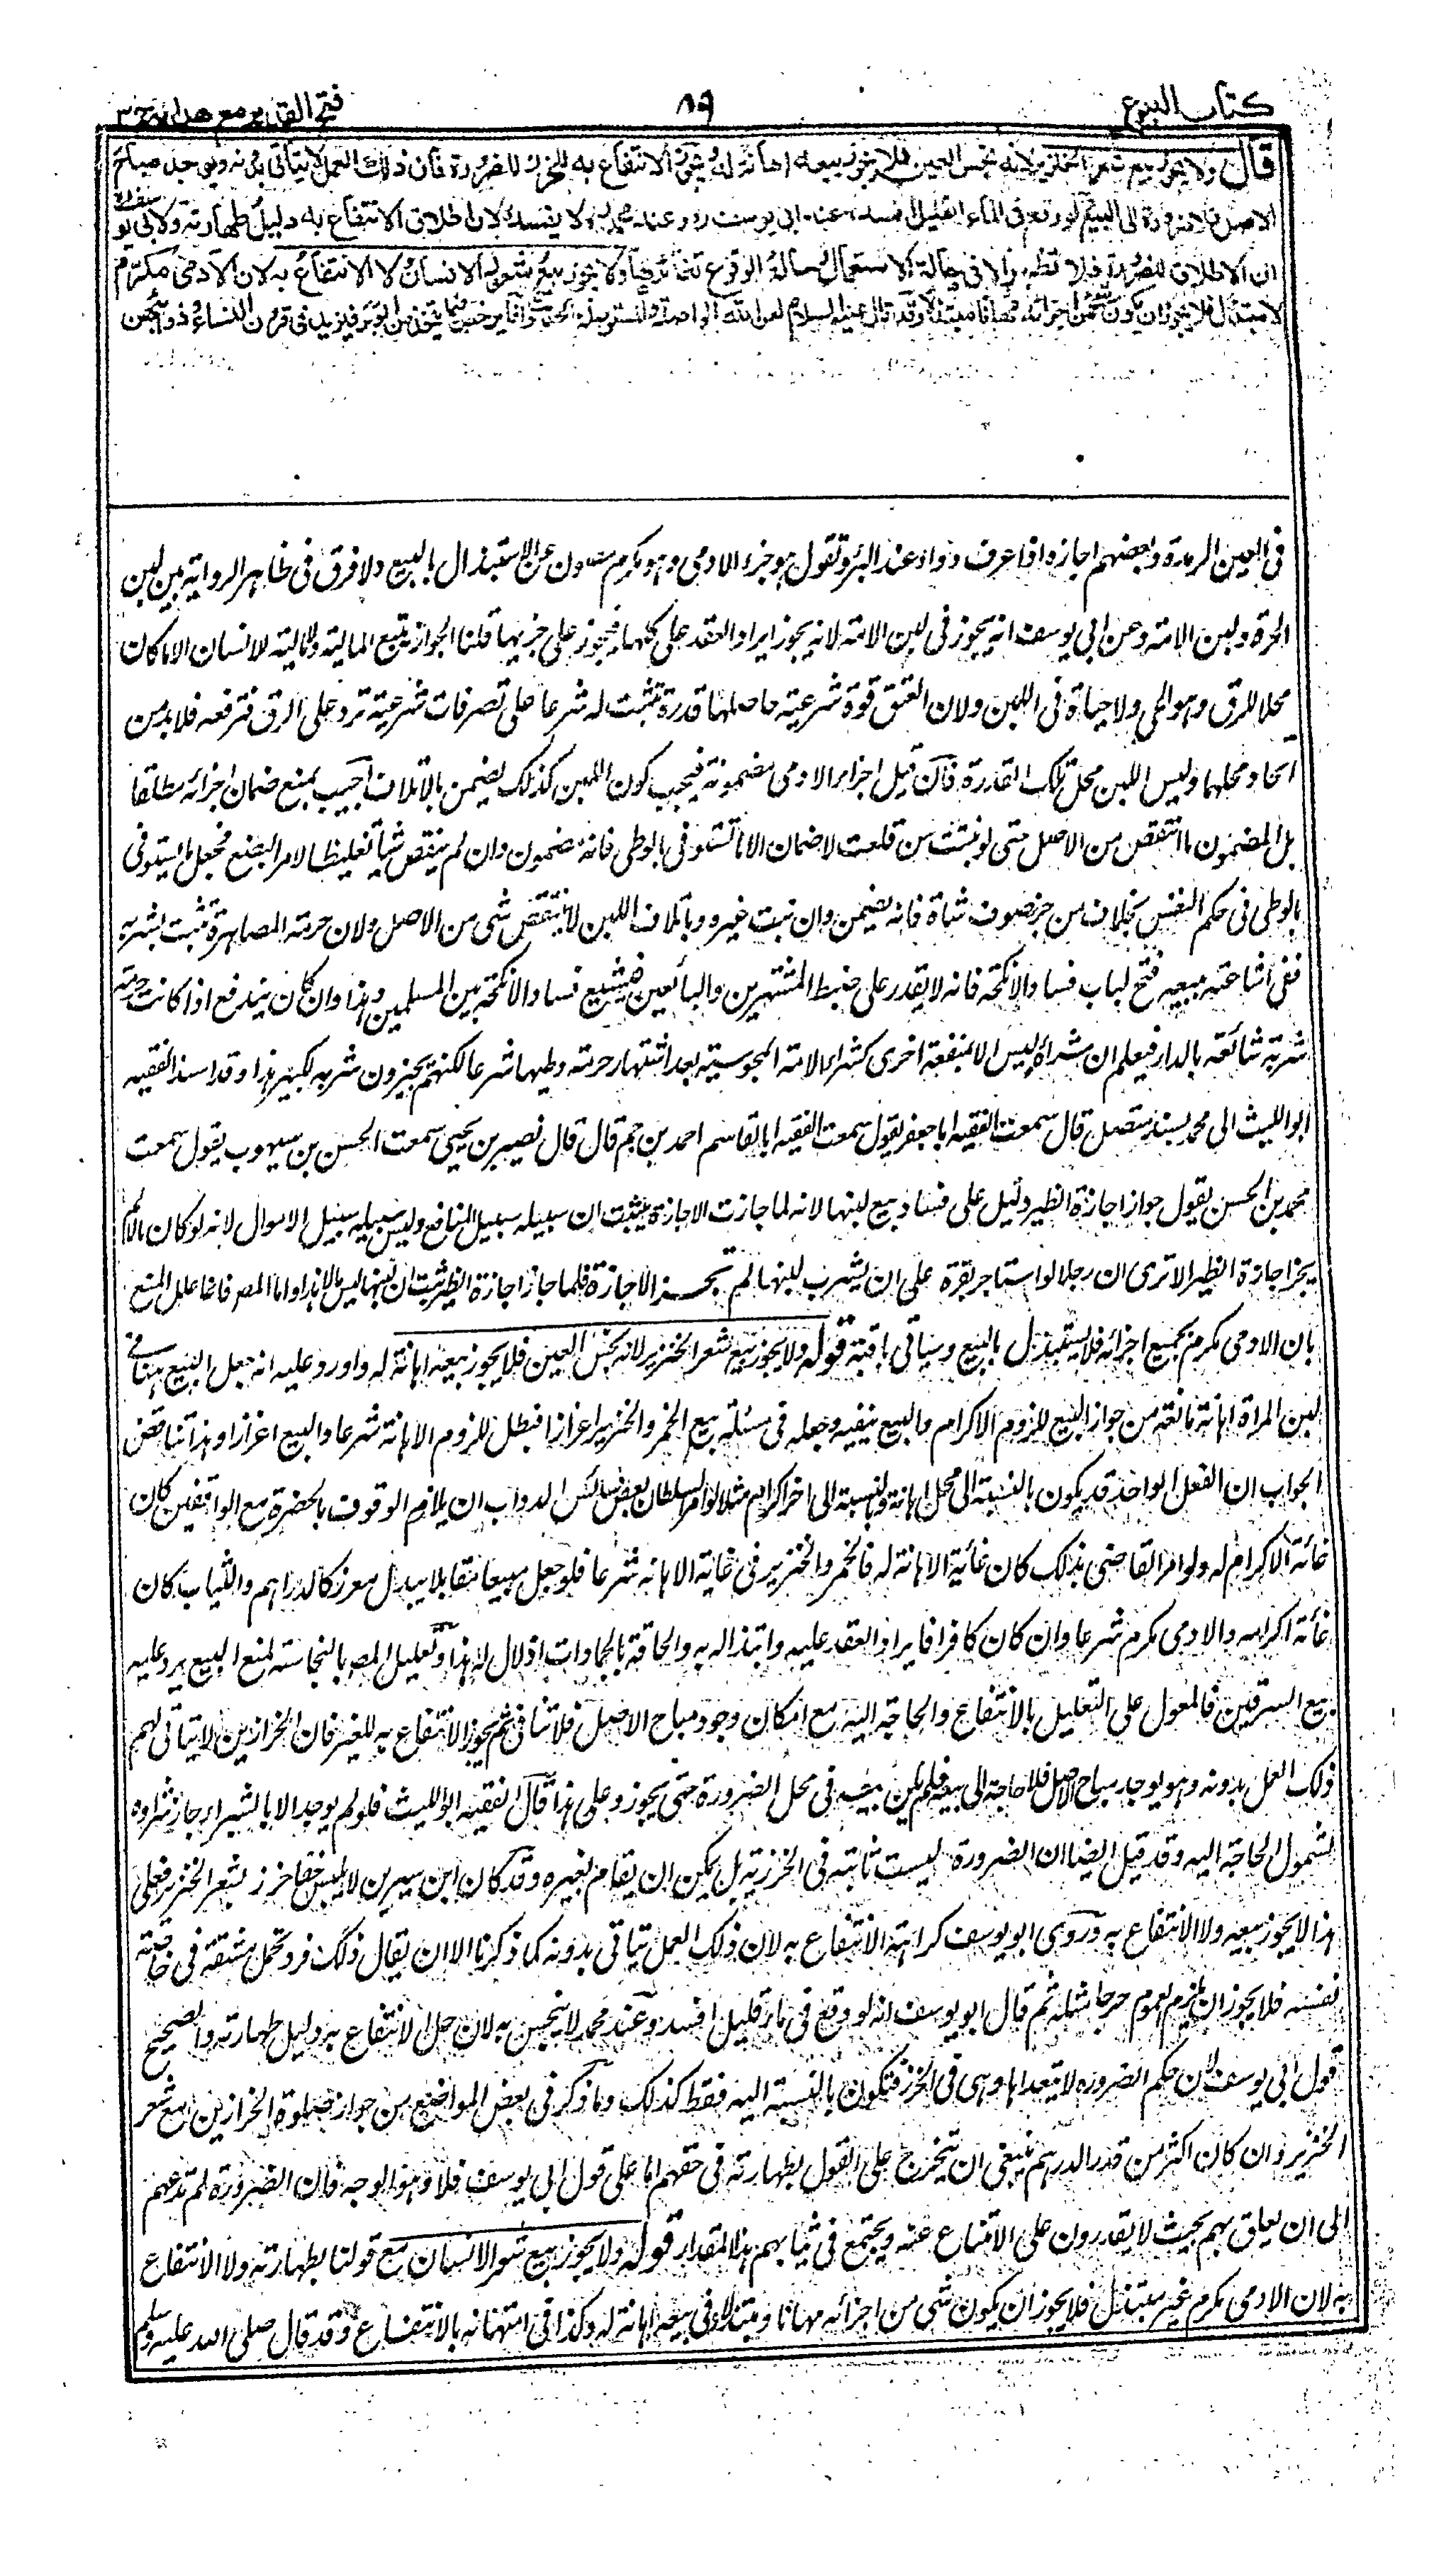 كتاب البيوع
٨٩
فتح القدير مع هدايه ج٣
قال ولا يجوز بيع شعر الخنزير لانه نجس العين فلا يجوز بيعه اهانة له ويجوز الانتفاع به للخرز للضرورة فان ذلك العمل لا يتأتى بدونه ويوجد مباح
الاصل فلا ضرورة الى البيع ولو وقع في الماء القليل افسده عند ابي يوسف رح وعند محمد رح لا يفسده لان اطلاق الانتفاع به دليل طهارته ولابي يوسف رح
ان الاطلاق للضرورة فلا تظهر الا في حالة الاستعمال وحالة الوقوع تغايرها ولا يجوز بيع شعور الانسان ولا الانتفاع به لان الآدمي مكرم
لا مبتذل فلا يجوز ان يكون شئ من اجزائه مهانا مبتذلا وقد قال عليه السلام لعن الله الواصلة والمستوصلة الحديث وانما يرخص فيما يتخذ من الوبر فيزيد في قرون النساء وذوائبهن
في العين الرمدة وبعضهم اجازه اذا عرف دواء عند البرء وتقول هو جزء الادمي وهو مكرم مصون عن الابتذال بالبيع ولا فرق في ظاهر الرواية بين لبن
الحرة ولبن الامة وعن ابي يوسف انه يجوز في لبن الامة لانه يجوز ايراد العقد على كلها فيجوز على جزئها قلنا الجواز يتبع المالية ولا مالية للانسان الا ما كان
محلا للرق وهو الحي ولا حياة في اللبن ولان العتق قوة شرعية حاصلها قدرة تثبت له شرعا على تصرفات شرعية ترد على الرق فترفعه فلا بد من
اتحاد محلهما وليس اللبن محل تلك القدرة فان قيل اجزاء الادمي مضمونة فيجب كون اللبن كذلك يضمن بالاتلاف اجيب بمنع ضمان اجزائه مطلقا
بل المضمون ما انتقص من الاصل حتى لو نبتت سن قلعت لا ضمان الا ما تستوفى بالوطي فانه مضمون وان لم ينتقص شيئا تغليظا لامر البضع فجعل ما يستوفى
بالوطي في حكم النفس بخلاف من جز صوف شاة فانه يضمن وان نبت غيره وباتلاف اللبن لا ينتقص شئ من الاصل ولان حرمة المصاهرة تثبت بشربه
ففي اشاعته ببيعه فتح لباب فساد الانكحة فانه لا يقدر على ضبط المشتهرين والبائعين فيشيع فساد الانكحة بين المسلمين وهذا وان كان يندفع اذا كانت حرمة
شربه شائعة بالدار فيعلم ان شراءه ليس الا لمنفعة اخرى كشراء الامة المجوسية بعد اشتهار حرمة وطيها شرعا لكنهم يجيزون شربه للكبير هذا وقد اسند الفقيه
ابو الليث الى محمد بسند متصل قال سمعت الفقيه ابا جعفر يقول سمعت الفقيه ابا القاسم احمد بن حم قال قال نصير بن يحيى سمعت الحسن بن سيهوب يقول سمعت
محمد بن الحسن يقول جواز اجازة الظير دليل على فساد بيع لبنها لانه لما جازت الاجازة يثبت ان سبيله سبيل المنافع وليس سبيله سبيل الاموال لانه لو كان مالا لم
يجز اجازة الظير الا ترى ان رجلا لو استاجر بقرة على ان يشرب لبنها لم تجز الاجازة فلما جاز اجازة الظير ثبت ان لبنها ليس مالا هذا واما المص فانما علل المنع
بان الادمي مكرم بجميع اجزائه فلا يبتذل بالبيع وسياتي باقيه قوله ولا يجوز بيع شعر الخنزير لانه نجس العين فلا يجوز بيعه اهانة له واورد عليه انه جعل البيع هنا في
لبن المراة اهانة مانعة من جواز البيع للزوم الاكرام والبيع ينفيه وجعله في مسئلة بيع الخمر والخنزير اعزازا فبطل للزوم الاهانة شرعا والبيع اعزاز وهذا تناقض
الجواب ان الفعل الواحد قد يكون بالنسبة الى محل اهانة وبالنسبة الى اخر اكرام مثلا لو امر السلطان بعض سائس الدواب ان يلازم الوقوف بالحضرة مع الواقفين كان
غاية الاكرام له ولو امر القاضي بذلك كان غاية الاهانة له فالخمر والخنزير في غاية الاهانة شرعا فلو جعل مبيعا مقابلا ببدل معزز كالدراهم والثياب كان
غاية اكرامه والادمي مكرم شرعا وان كان كافرا فايراد العقد عليه وابتذاله به والحاقه بالجمادات اذلال له هذا وتعليل المص بالنجاسة لمنع البيع يرد عليه
بيع السرقين فالمعول على التعليل بالانتفاع والحاجة اليه مع امكان وجود مباح الاصل فلا تنافي ثم يجوز الانتفاع به للخرز فان الخرازين لا يتاتى لهم
ذلك العمل بدونه وهو يوجد مباح الاصل فلا حاجة الى بيعه فلم يكن بيعه في محل الضرورة حتى يجوز وعلى هذا قال الفقيه ابو الليث فلو لم يوجد الا بالشراء جاز شراوه
لشمول الحاجة اليه وقد قيل ايضا ان الضرورة ليست ثابتة في الخرز به بل يمكن ان يقام بغيره وقد كان ابن سيرين لا يلبس خفا خرز بشعر الخنزير فعلى
هذا لا يجوز بيعه ولا الانتفاع به وروى ابو يوسف كراهة الانتفاع به لان ذلك العمل يتاتى بدونه كما ذكرنا الا ان يقال ذلك فرد تحمل مشقة في خاصة
نفسه فلا يجوز ان يلزم العموم حرجا مثله ثم قال ابو يوسف انه لو وقع في ماء قليل افسده وعند محمد لا ينجس به لان حل الانتفاع به دليل طهارته والصحيح
قول ابي يوسف لان حكم الضرورة لا يتعداها وهي في الخرز فتكون بالنسبة اليه فقط كذلك وما ذكر في بعض المواضع من جواز صلوة الخرازين مع شعر
الخنزير وان كان اكثر من قدر الدرهم ينبغي ان يتخرج على القول بطهارته في حقهم اما على قول ابي يوسف فلا وهو الوجه فان الضرورة لم تدعهم
الى ان يعلق بهم بحيث لا يقدرون على الامتناع عنه ويجتمع في ثيابهم هذا المقدار قوله ولا يجوز بيع شعر الانسان مع قولنا بطهارته ولا الانتفاع
به لان الادمي مكرم غير مبتذل فلا يجوز ان يكون شئ من اجزائه مهانا ومبتذلا وفي بيعه اهانة له وكذا في امتهانه بالانتفاع وقد قال صلى الله عليه وسلم